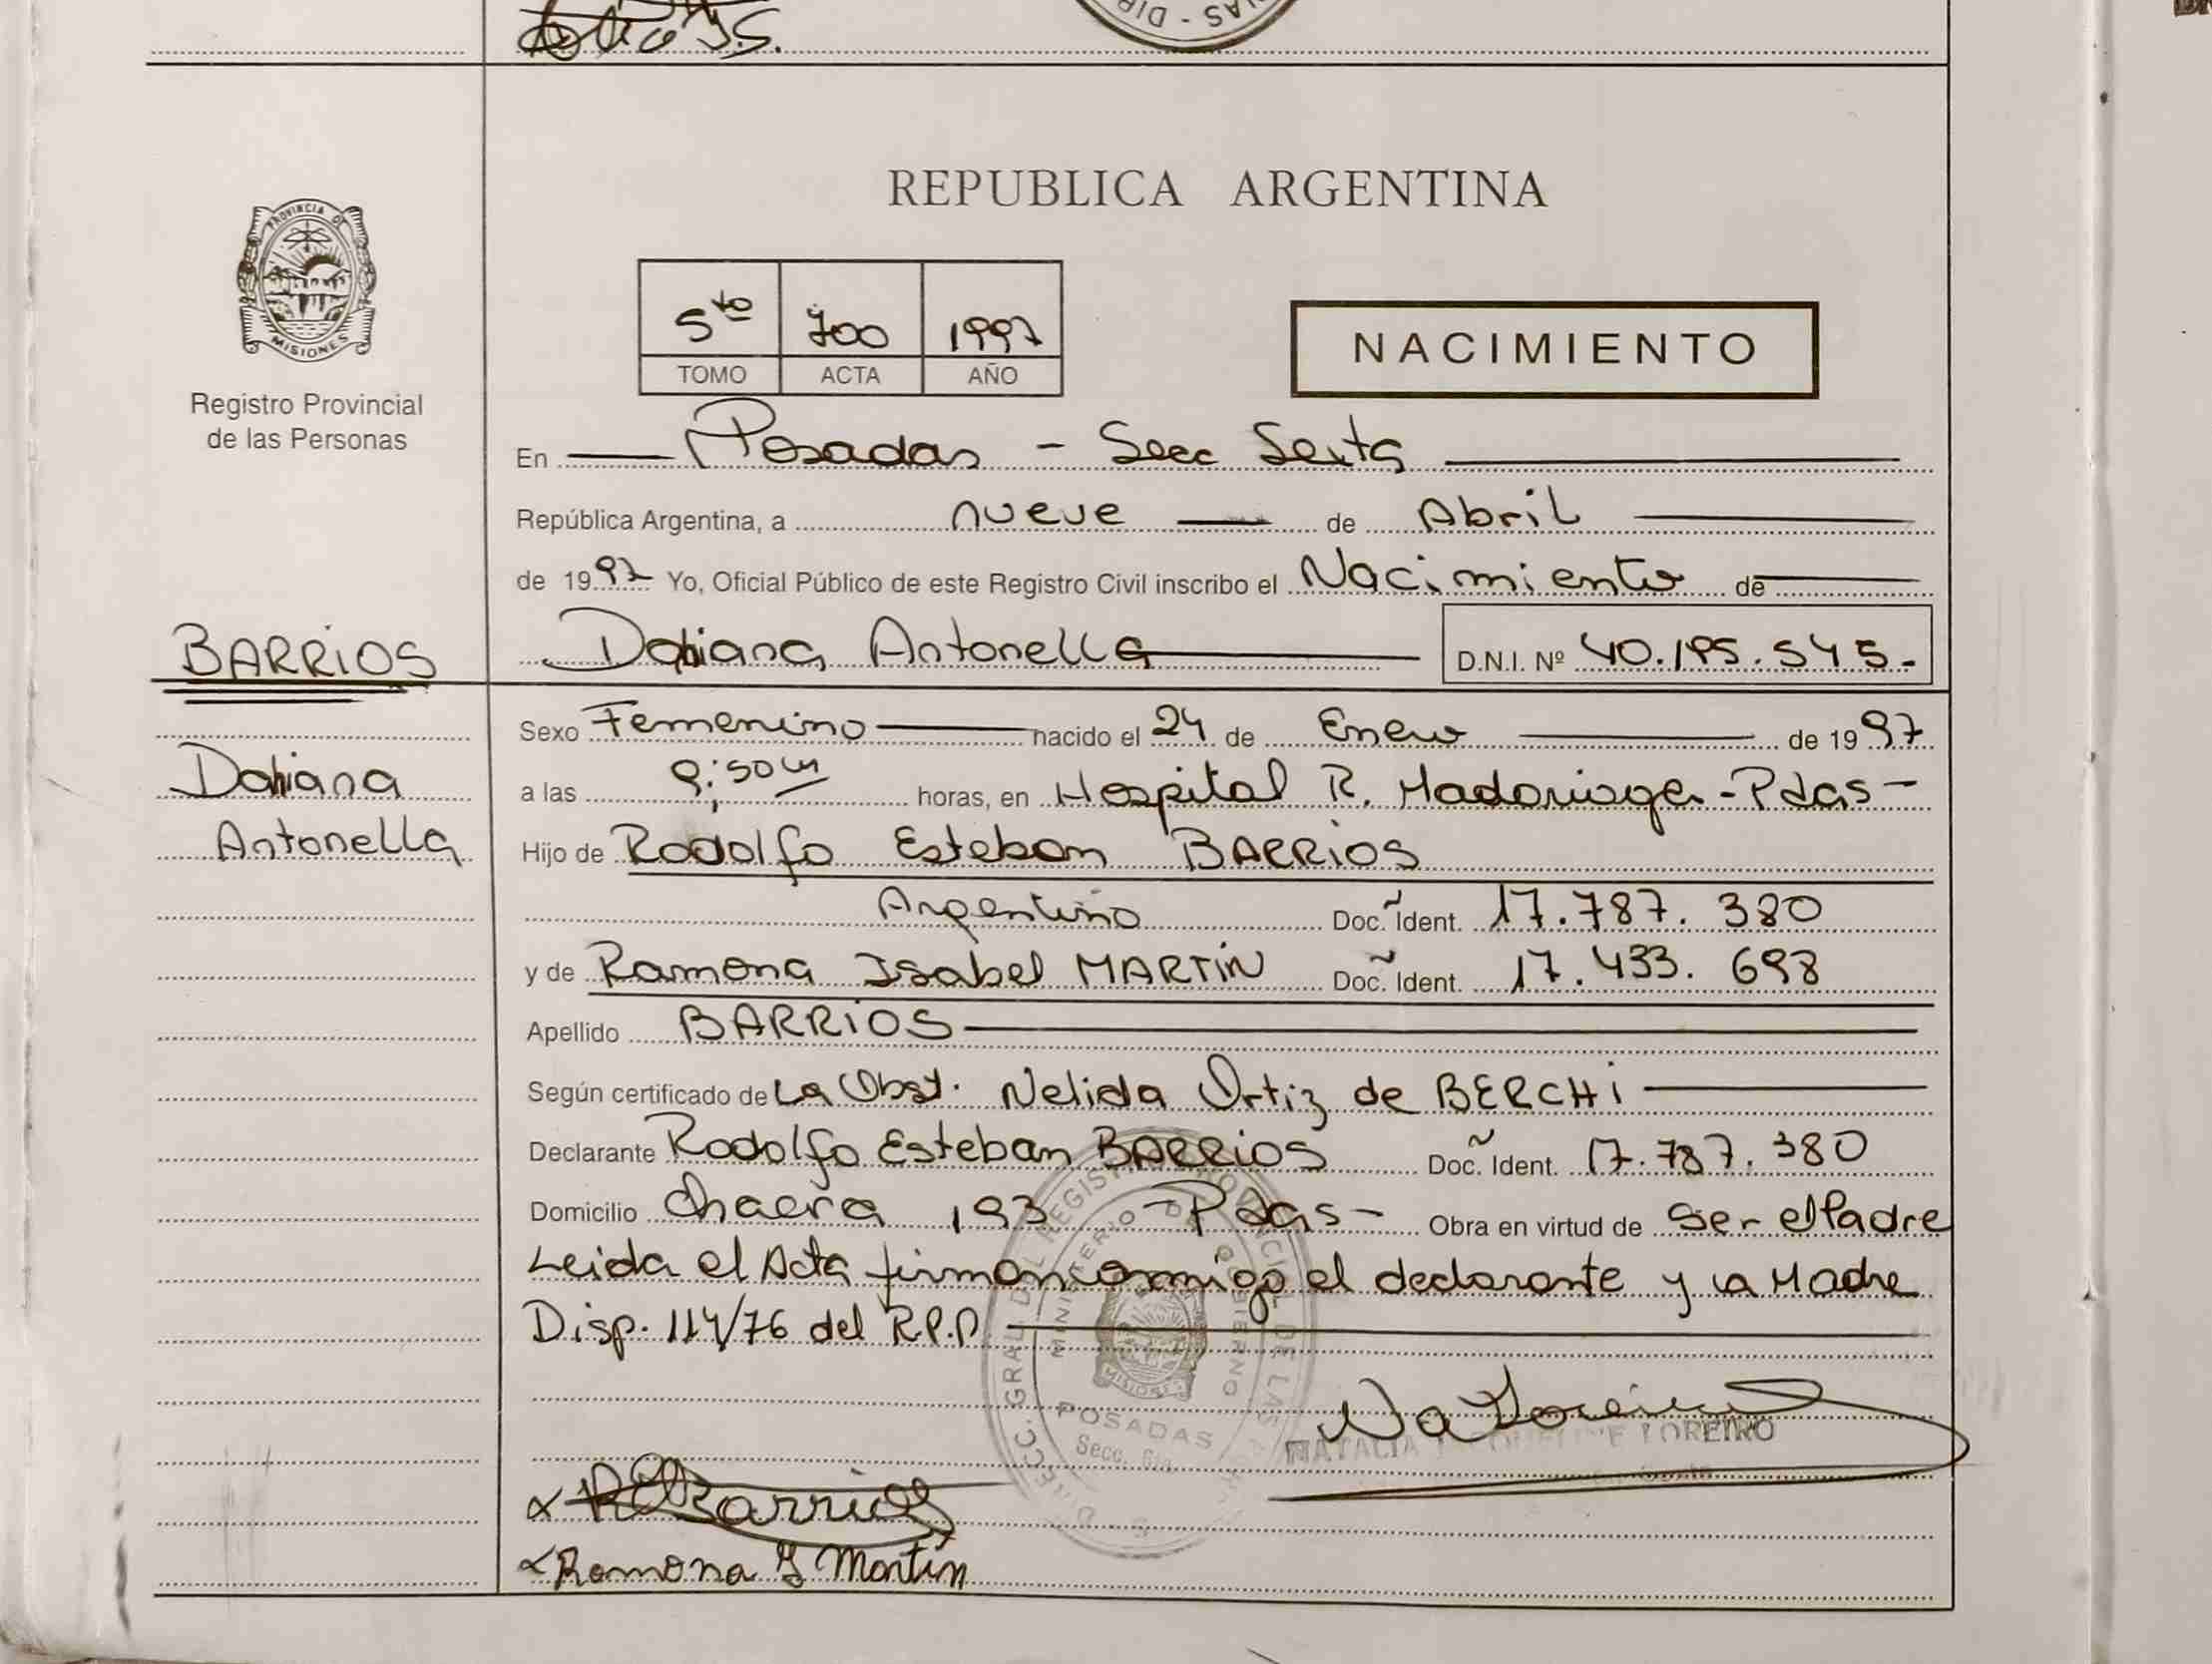 REPUBLICA ARGENTINA
PROVINCIA DE
MISIONES
Registro Provincial
de las Personas
5to 700 1997
TOMO ACTA AÑO
NACIMIENTO
En Posadas - Secc Sexta
República Argentina, a nueve de Abril
de 1997 Yo, Oficial Público de este Registro Civil inscribo el Nacimiento de
BARRIOS
Antonella D.N.I. Nº 40.195.545.-
Sexo Femenino nacido el 24 de Enero de 1997
Antonella
a las horas, en Hospital R. Madariaga - Pdas -
Hijo de Rodolfo Esteban BARRIOS
Argentino Doc. Ident. 17.787.380
y de Ramona Isabel MARTIN Doc. Ident. 17.433.698
Apellido BARRIOS
Según certificado de La Obst. Nelida Ortiz de BERCHI
Declarante Rodolfo Esteban BARRIOS Doc. Ident. 17.787.380
Domicilio chacra 193 - Pdas - Obra en virtud de Ser el Padre
Leida el Acta firman conmigo el declarante y la Madre
Disp. 114/76 del R.P.P.
MINISTERIO DE GOBIERNO
MISIONES
POSADAS
Secc. 6ta
NATALIA LOREIRO
Barrios
Ramona I Martin